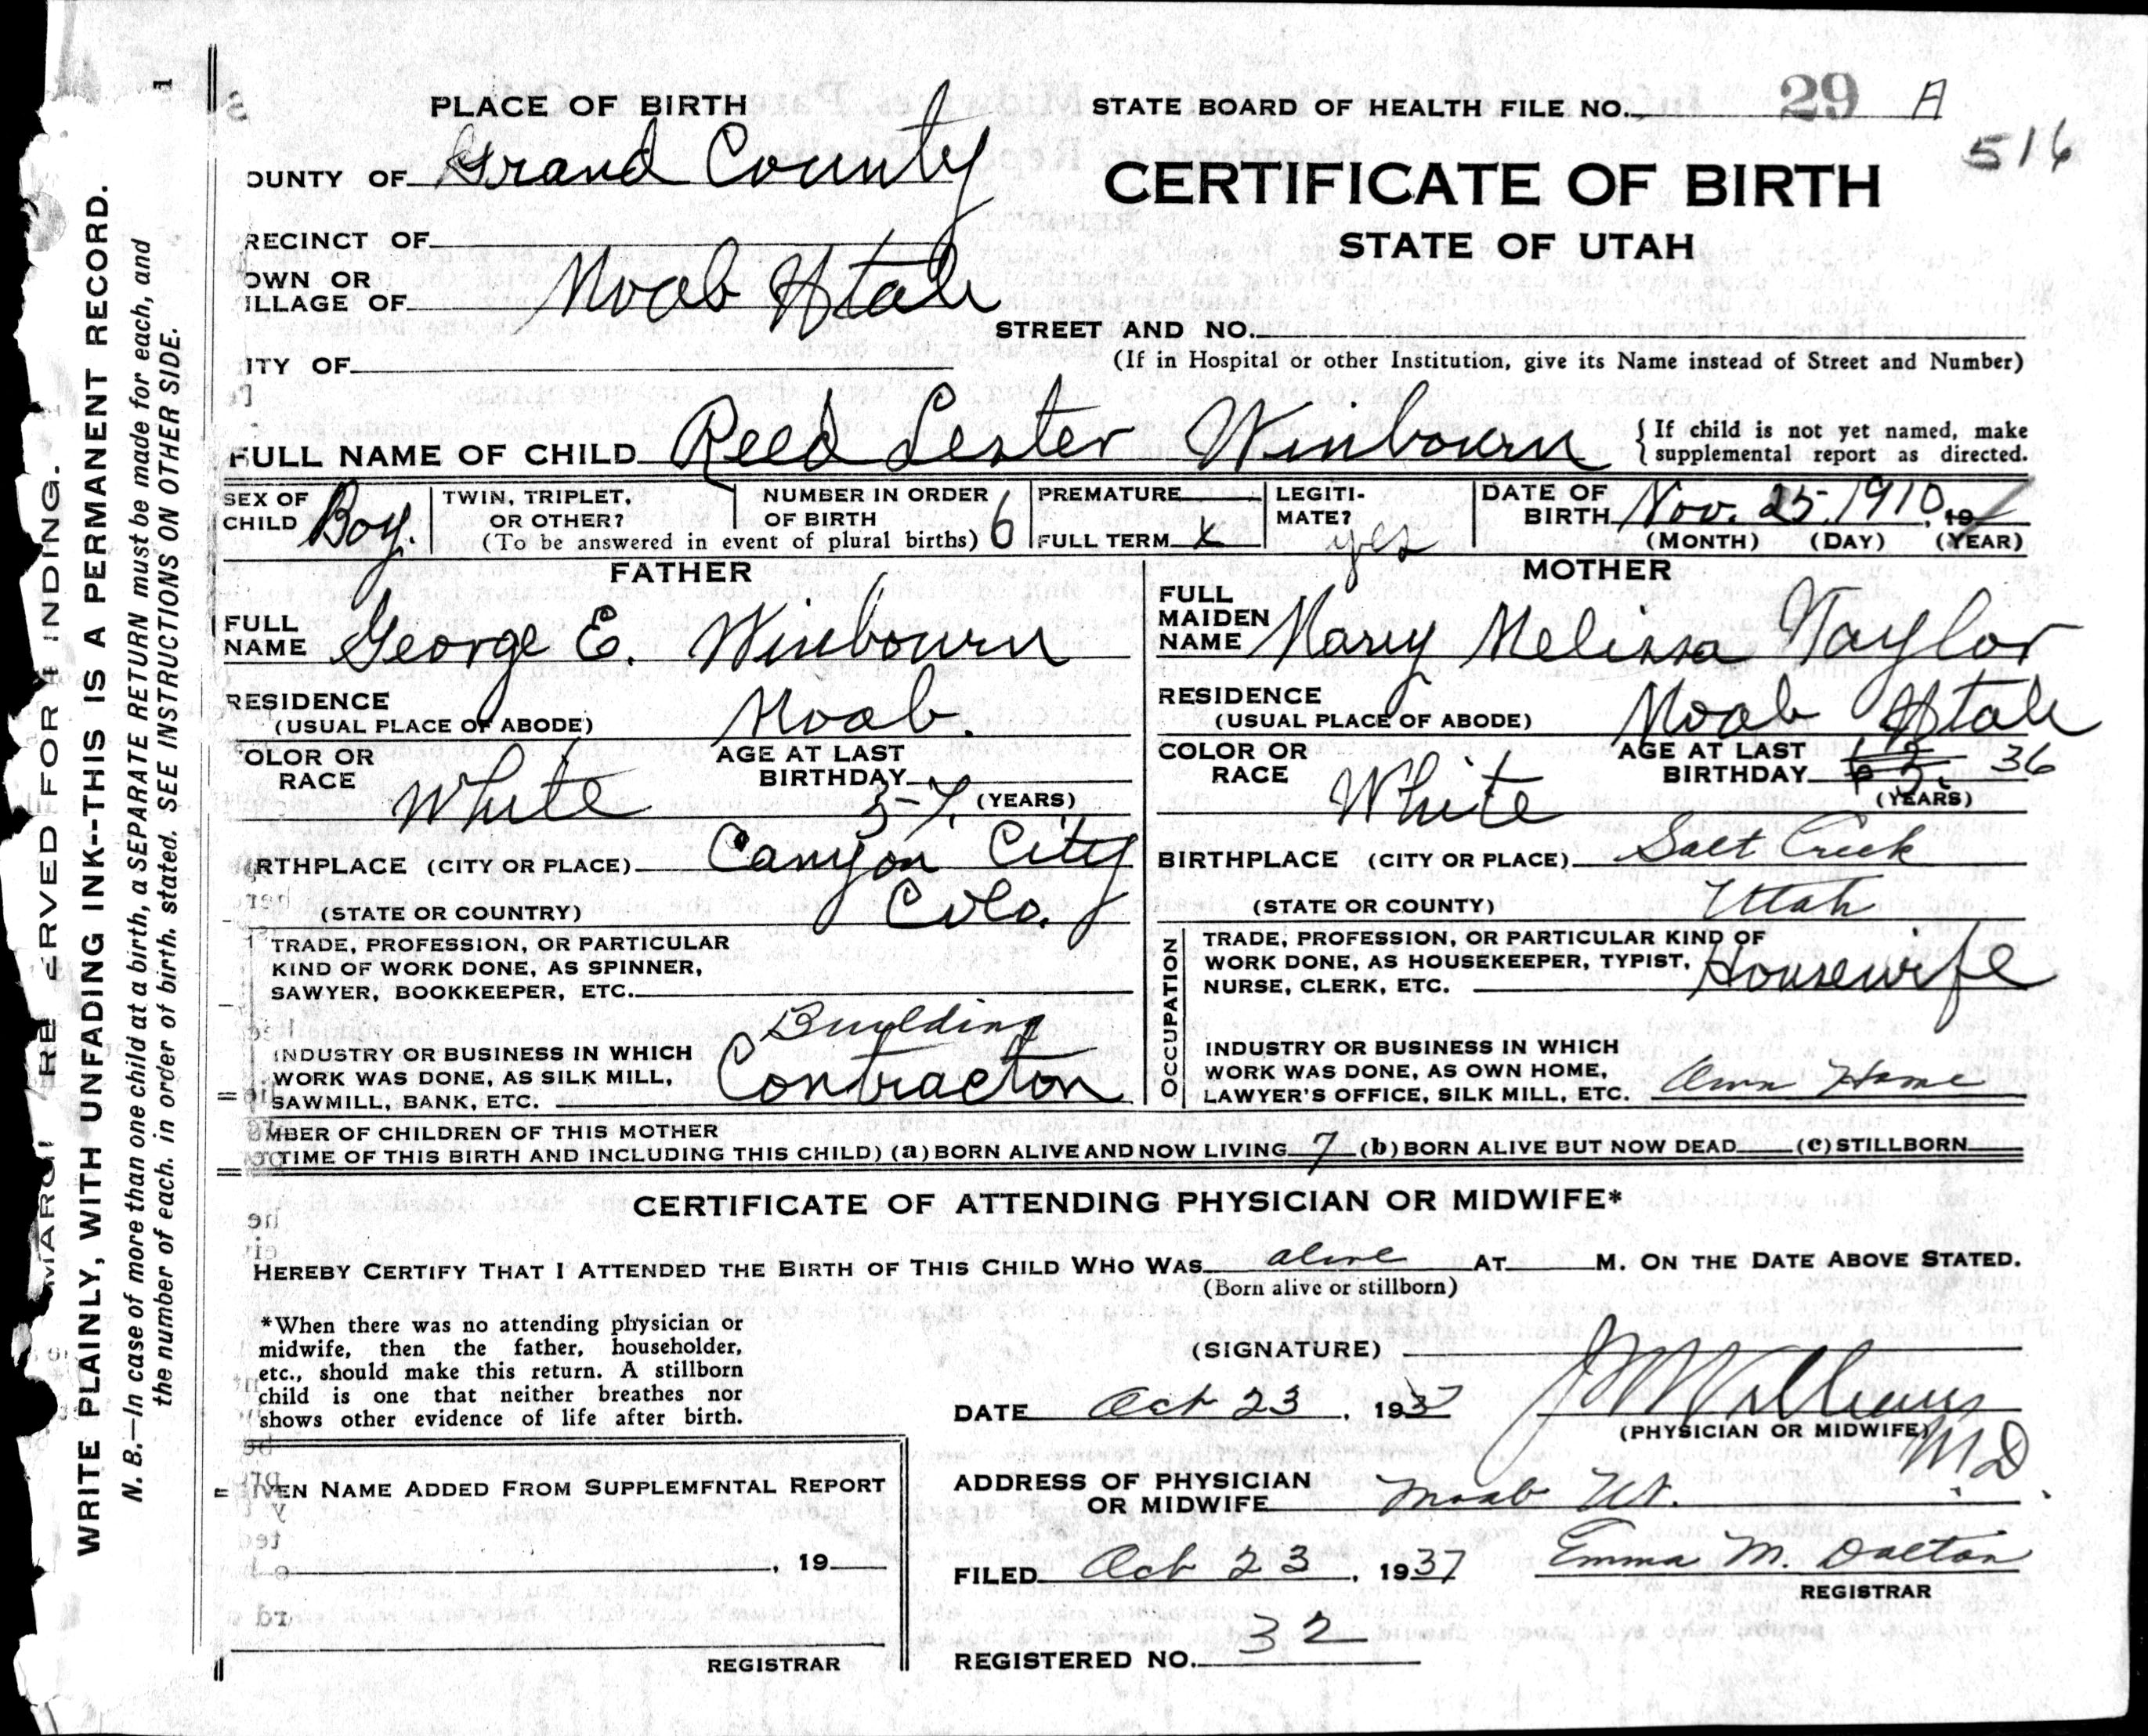 PLACE OF BIRTH
STATE BOARD OF HEALTH FILE NO. 29 A
516
OUNTY OF Grand County
CERTIFICATE OF BIRTH
STATE OF UTAH
RECINCT OF
OWN OR
ILLAGE OF Moab Utah
STREET AND NO.
(If in Hospital or other Institution, give its Name instead of Street and Number)
ITY OF
FULL NAME OF CHILD Reed Lester Winbourn
{ If child is not yet named, make
supplemental report as directed.
SEX OF
CHILD Boy.
TWIN, TRIPLET,
OR OTHER?
NUMBER IN ORDER
OF BIRTH 6
(To be answered in event of plural births)
PREMATURE
FULL TERM x
LEGITI-
MATE? yes
DATE OF
BIRTH Nov. 25, 1910, 19
(MONTH) (DAY) (YEAR)
FATHER
FULL
NAME George E. Winbourn
RESIDENCE
(USUAL PLACE OF ABODE) Moab.
OLOR OR
RACE White
AGE AT LAST
BIRTHDAY (YEARS)
RTHPLACE (CITY OR PLACE) Canyon City
(STATE OR COUNTRY) Colo.
TRADE, PROFESSION, OR PARTICULAR
KIND OF WORK DONE, AS SPINNER,
SAWYER, BOOKKEEPER, ETC.
Buylding
INDUSTRY OR BUSINESS IN WHICH
WORK WAS DONE, AS SILK MILL,
SAWMILL, BANK, ETC. Contractor
MOTHER
FULL
MAIDEN
NAME Mary Melissa Taylor
RESIDENCE
(USUAL PLACE OF ABODE) Moab Utah
COLOR OR
RACE White
AGE AT LAST
BIRTHDAY 36
(YEARS)
BIRTHPLACE (CITY OR PLACE) Salt Creek
(STATE OR COUNTY) Utah
OCCUPATION
TRADE, PROFESSION, OR PARTICULAR KIND OF
WORK DONE, AS HOUSEKEEPER, TYPIST,
NURSE, CLERK, ETC. Housewife
INDUSTRY OR BUSINESS IN WHICH
WORK WAS DONE, AS OWN HOME,
LAWYER'S OFFICE, SILK MILL, ETC. Own Home
MBER OF CHILDREN OF THIS MOTHER
TIME OF THIS BIRTH AND INCLUDING THIS CHILD) (a) BORN ALIVE AND NOW LIVING 7 (b) BORN ALIVE BUT NOW DEAD (c) STILLBORN
CERTIFICATE OF ATTENDING PHYSICIAN OR MIDWIFE*
HEREBY CERTIFY THAT I ATTENDED THE BIRTH OF THIS CHILD WHO WAS alive AT M. ON THE DATE ABOVE STATED.
(Born alive or stillborn)
*When there was no attending physician or
midwife, then the father, householder,
etc., should make this return. A stillborn
child is one that neither breathes nor
shows other evidence of life after birth.
(SIGNATURE) J W Williams
DATE Oct 23, 1937
(PHYSICIAN OR MIDWIFE) M.D.
ADDRESS OF PHYSICIAN
OR MIDWIFE Moab Ut.
VEN NAME ADDED FROM SUPPLEMFNTAL REPORT
, 19
REGISTRAR
FILED Oct 23, 1937 Emma M. Dalton
REGISTRAR
REGISTERED NO. 32
MARGI RE ERVED FOR INDING.
WRITE PLAINLY, WITH UNFADING INK--THIS IS A PERMANENT RECORD.
N. B.—In case of more than one child at a birth, a SEPARATE RETURN must be made for each, and
the number of each. in order of birth. stated. SEE INSTRUCTIONS ON OTHER SIDE.
1